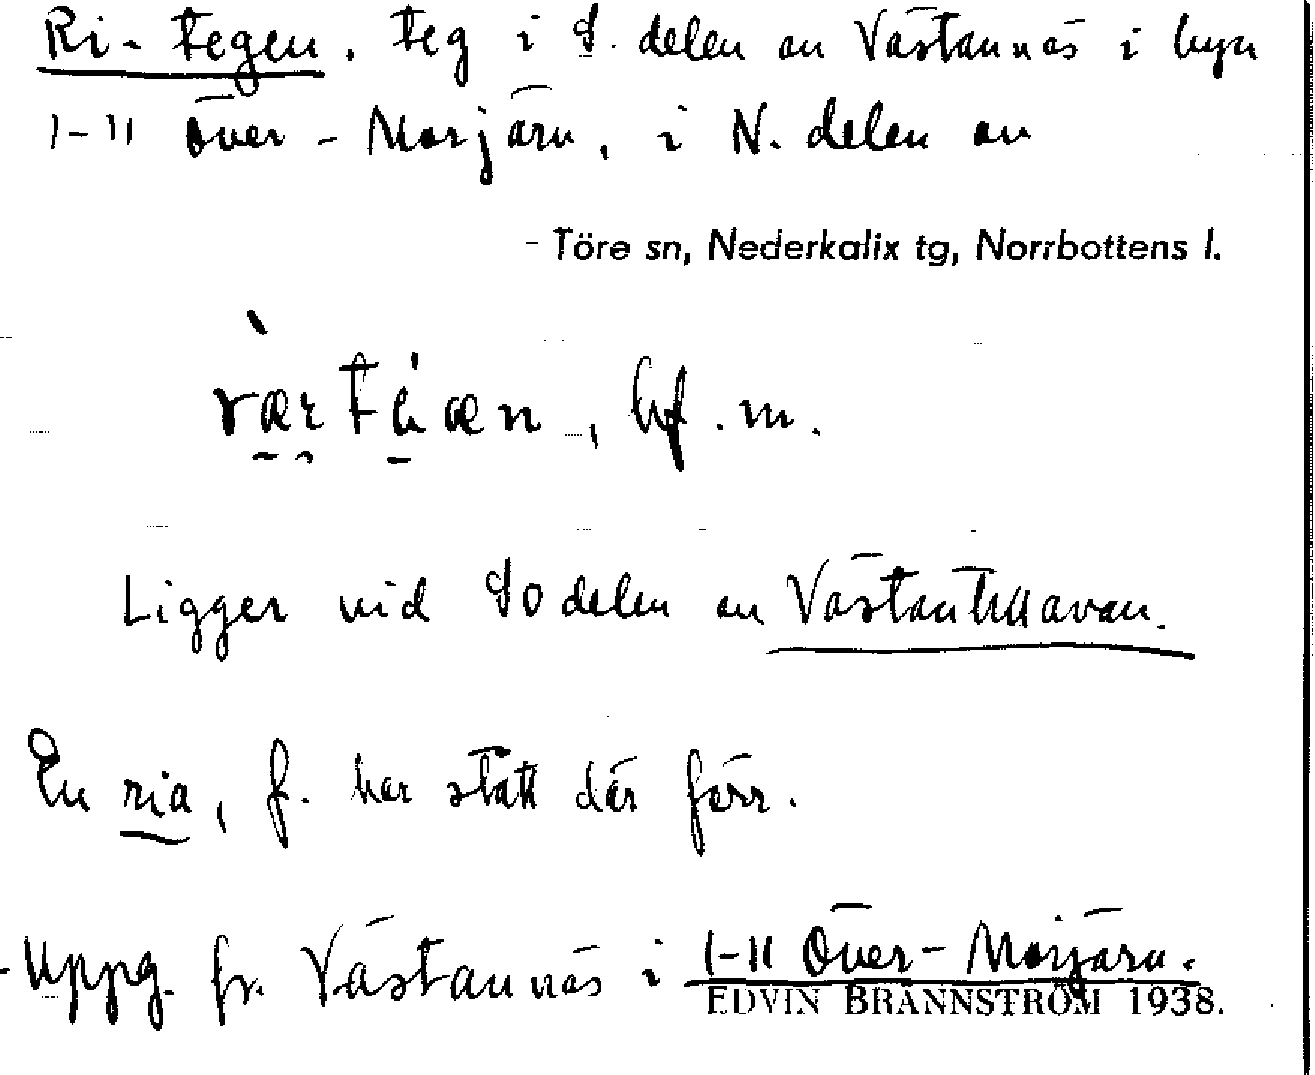 Ri-tegen, teg i S. delen av Västannäs i byn
1-11 Över-Morjärv, i N. delen av
- Töre sn, Nederkalix tg, Norrbottens l.
bf. m.
Ligger vid SO delen av Västanträavan.
En ria, f. har stått där förr.
- Uppg. fr. Västannäs i 1-11 Över-Morjärv.
EDVIN BRÄNNSTRÖM 1938.